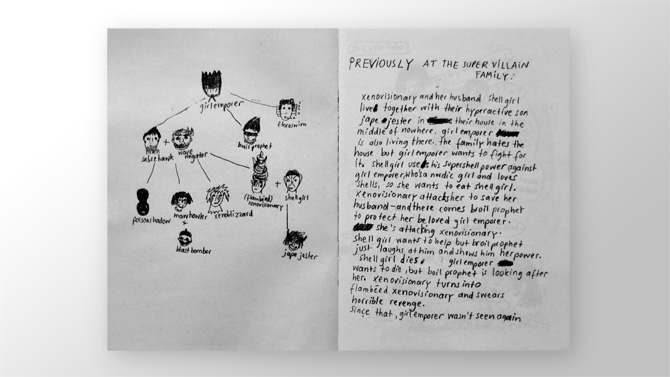 girl emporer
throwira
sabre hawk + wave negator
broil prophet
(flambéed) xenovisionary + shellgirl
poison shadow
moon howler
xenoblizzard
+
blast bomber
jape jester
PREVIOUSLY AT THE SUPER VILLAIN
FAMILY:
xenovisionary and her husband shellgirl
lived together with their hyperactive son
jape jester in their house in the
middle of nowhere. girl emporer
is also living there. the family hates the
house but girl emporer wants to fight for
it. shell girl uses his supershell power against
girl emporer, who's a nudic girl and loves
shells, so she wants to eat shell girl.
xenovisionary attacks her to save her
husband – and there comes broil prophet
to protect her beloved girl emporer.
she's attacking xenovisionary.
shell girl wants to help but broil prophet
just laughs at him and shows him her power.
shell girl dies. girl emporer
wants to die, but broil prophet is looking after
her. xenovisionary turns into
flambéed xenovisionary and swears
horrible revenge.
since that, girl emporer wasn't seen again